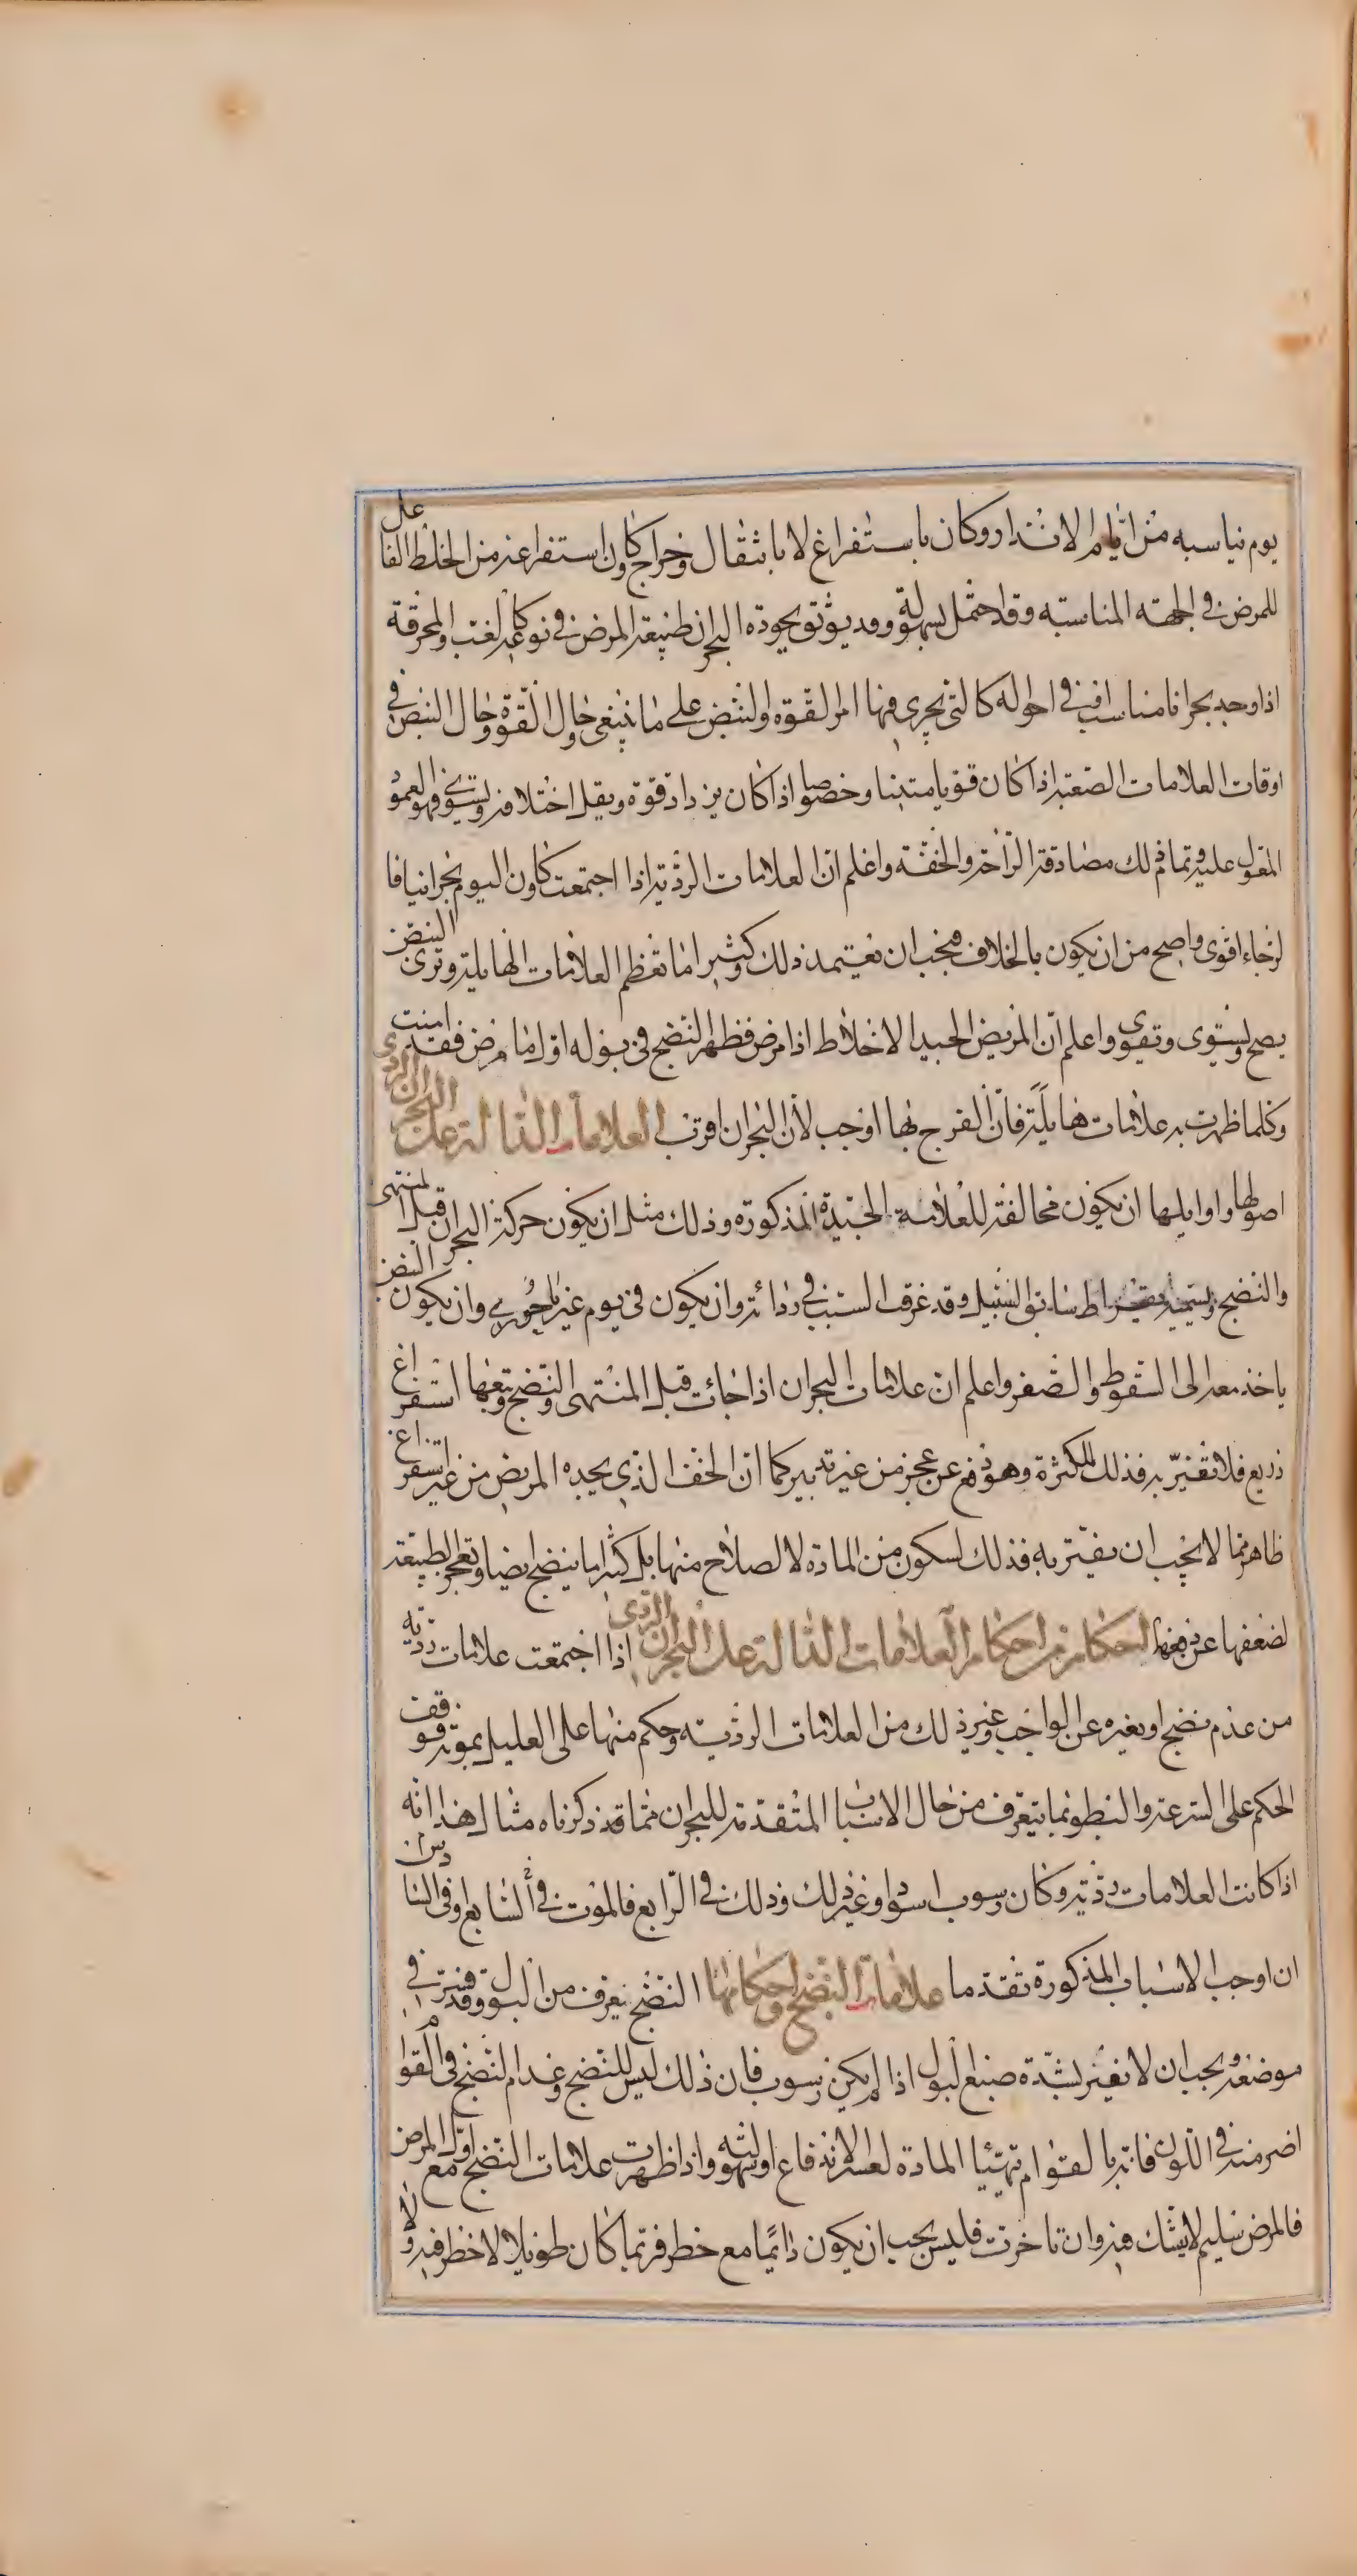 يوم يناسبه من ايام الانذار وكان باستفراغ لا بانتقال وخراج وكان استفراغه من الخلط الفاعل
للمرض في الجهته المناسبته وقد احتمل بسهولة وقد يوثق بجودة البحران طبيعة المرض في نوعه كالغب والمحرقة
اذا وجد بحرانا مناسبا في احواله كالتي يجري فيها امر القوة والنبض على ما ينبغي وحال القوة وحال النبض في
اوقات العلامات الصعبة اذا كان قويا متينا وخصوصا اذا كان يزداد قوة ويقل اختلافه ويستوي فهو العمود
المعول عليه وتمام ذلك مصادقة الراحة والخفة واعلم ان العلامات الردية اذا اجتمعت وكان اليوم بحرانيا فا
لرجاء اقوى واصح من ان يكون بالخلاف فيجب ان تعتمد ذلك وكثيرا ما تعظم العلامات الهايلة وترى النبض
يصح ويستوى وتقوى واعلم ان المريض الجيد الاخلاط اذا مرض فظهر النضج في بوله اول ما مرض فقد امنت
وكلما ظهرت به علامات هايلة فان الفرج بها اوجب لان البحران اقرب في العلامات الدالة على البحران الردي
اصولها واوايلها ان يكون مخالفة للعلامة الجيدة المذكورة وذلك مثل ان يكون حركة البحران قبل المنتهى
والنضج ويسميه بقراط سابق السبيل وقد عرفت السبب في رداءته وان يكون في يوم غير باحوري وان يكون النبض
ياخذ معه الى السقوط والصغر واعلم ان علامات البحران اذا جائت قبل المنتهى والنضج وتبعها استفراغ
ذريع فلا تغتر به فذلك للكثرة وهو دفع عن عجز من غير تدبير كما ان الخف الذي يجده المريض من غير استفراغ
ظاهر مما لا يجب ان يغتر به فذلك لسكون من المادة لا لصلاح منها بل كثيرا ما ينضج ايضا وتعجز الطبيعة
لضعفها عن دفعها احكام من احكام العلامات الدالة على البحران الردي اذا اجتمعت علامات ردية
من عدم نضج او تغيره عن الواجب وغير ذلك من العلامات الردية وحكم منها على العليل بموته فوقف
الحكم على السرعة والبطو نما يتعرف من حال الاسباب المتقدمة للبحران مما قد ذكرناه مثال هذا انه
اذا كانت العلامات ردية وكان رسوب اسود او غير ذلك وذلك في الرابع فالموت في السابع او في السادس
ان اوجب الاسباب المذكورة تقدما علامات النضج واحكامها النضج يعرف من البول وقد فسر في
موضعه ويجب ان لا يغتر بشدة صبغ البول اذا لم يكن رسوب فان ذلك ليس للنضج وعدم النضج في القوام
اضر منه في اللون فانه بالقوام تتهيا المادة لعسر الاندفاع او سهولته واذا ظهرت علامات النضج مع اول المرض
فالمرض سليم لا يشك فيه وان تاخرت فليس يجب ان يكون دايما مع خطر فربما كان طويلا لا خطر فيه ولا